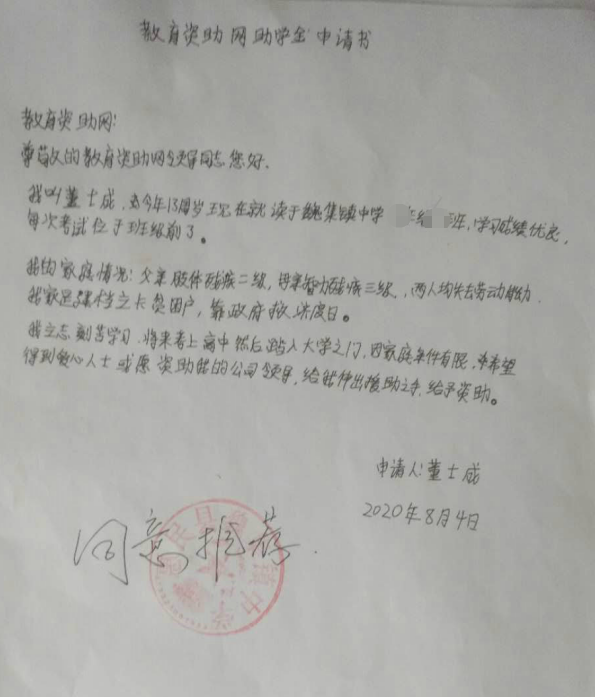 教育资助网助学金申请书
教育资助网:
尊敬的教育资助网领导同志您好.
我叫董士成.今年13周岁现在就读于魏集镇中学 年级 班,学习成绩优良,
每次考试位于班级前3。
我的家庭情况:父亲肢体残疾二级,母亲智力残疾三级,两人均失去劳动能力.
我家是建档立卡贫困户,靠政府救济度日。
我立志刻苦学习.将来考上高中然后踏入大学之门,因家庭条件有限,希望
得到爱心人士或愿资助的公司领导,给伸出援助之手,给予资助。
申请人:董士成
2020年8月4日
同意推荐.